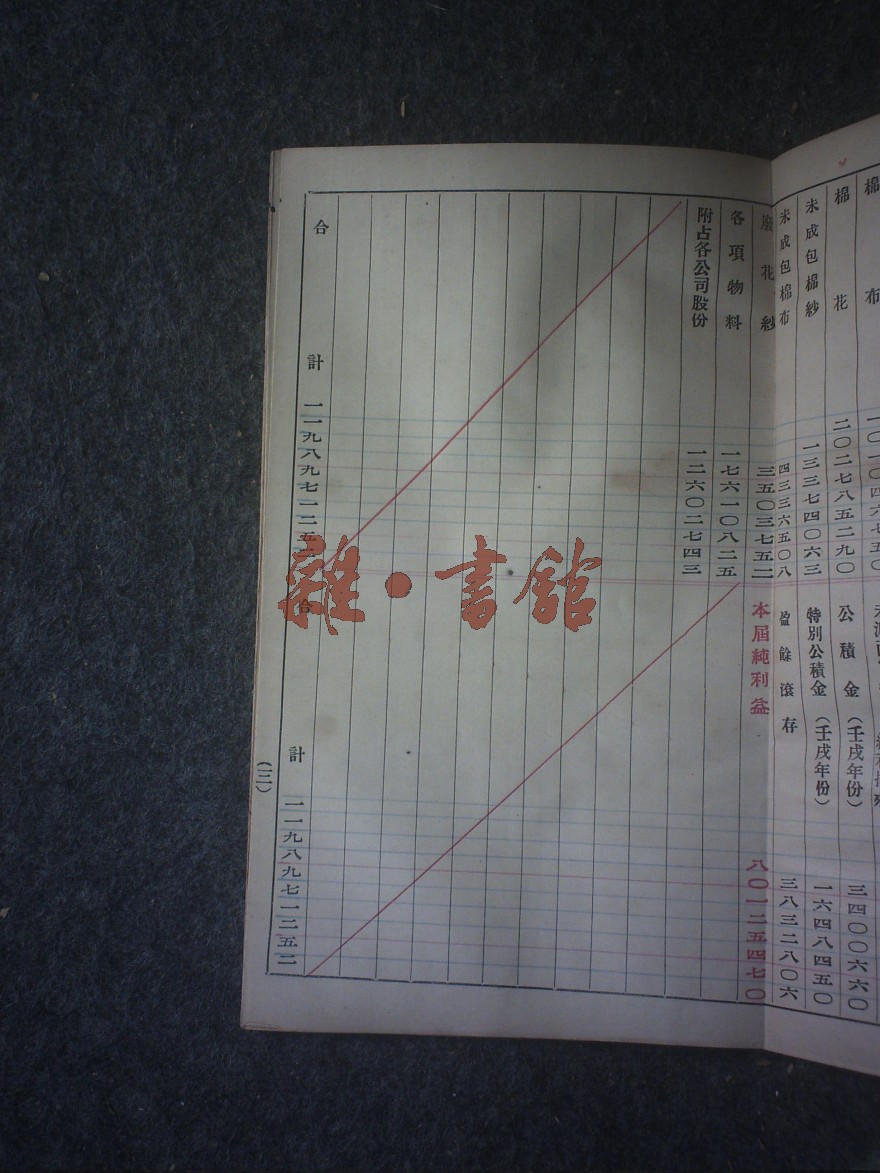 棉布 一〇一〇四六七五〇
棉花 二〇二七八五二九〇
未成包棉紗 一三三七四〇六三
未成包棉布 四三三六五〇八
廢花紗 三五〇三七五二
各項物料 一七六一〇八二五
附占各公司股份 一二六〇二七四三
合計 一一九八九七一二五
公積金(壬戌年份) 三四〇〇六六〇
特別公積金(壬戌年份) 一六四八四五〇
盈餘滾存 三八三二八〇六
本屆純利益 八〇一二五四七〇
合計 一一九八九七一二五二
(三)
雜·書館